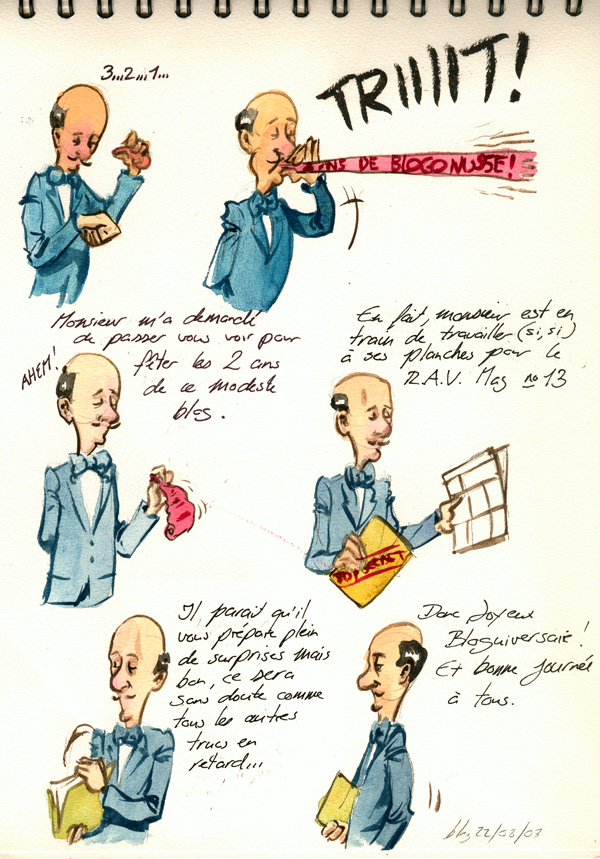 3...2...1...
TRIIIIT!
ANS DE BLOGONUSSE!
Monsieur m'a demandé
de passer vous voir pour
fêter les 2 ans
de ce modeste
blog.
AHEM!
En fait, monsieur est en
train de travailler (si, si)
à ses planches pour le
R.A.V. Mag no 13
TOP SECRET
Il parait qu'il
vous prépare plein
de surprises mais
bon, ce sera
sans doute comme
tous les autres
trucs en
retard...
Donc Joyeux
Bloguiversaire!
Et bonne journée
à tous.
blog 22/03/03